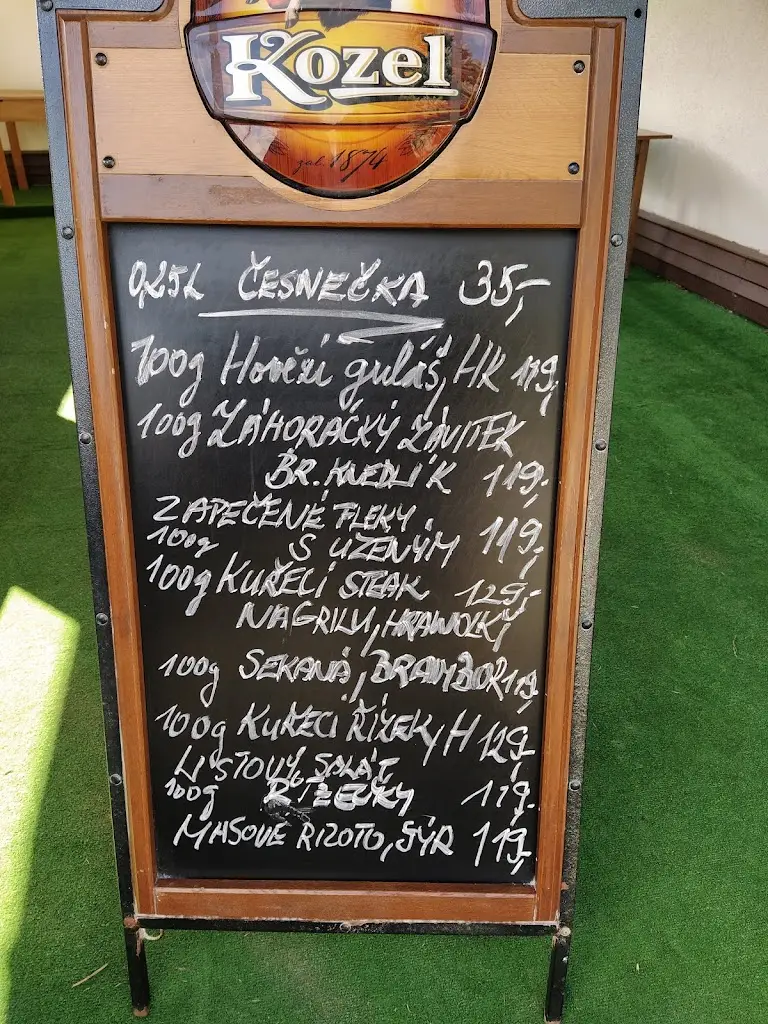 Kozel
zal. 1874
0,25L ČESNEČKA 35,-
100g Hovězí guláš, HK 119,-
100g ZÁHORÁCKÝ ZÁVITEK
BR. KNEDLÍK 119,-
ZAPEČENÉ FLEKY
100g S UZENÝM 119,-
100g KUŘECÍ STEAK 129,-
NAGRILU, HRANOLKY
100g SEKANÁ, BRAMBOR 119,-
100g KUŘECÍ ŘÍZEK, H 129,-
LISTOVÝ SALÁT
100g 119,-
MASOVÉ RIZOTO, SÝR 119,-